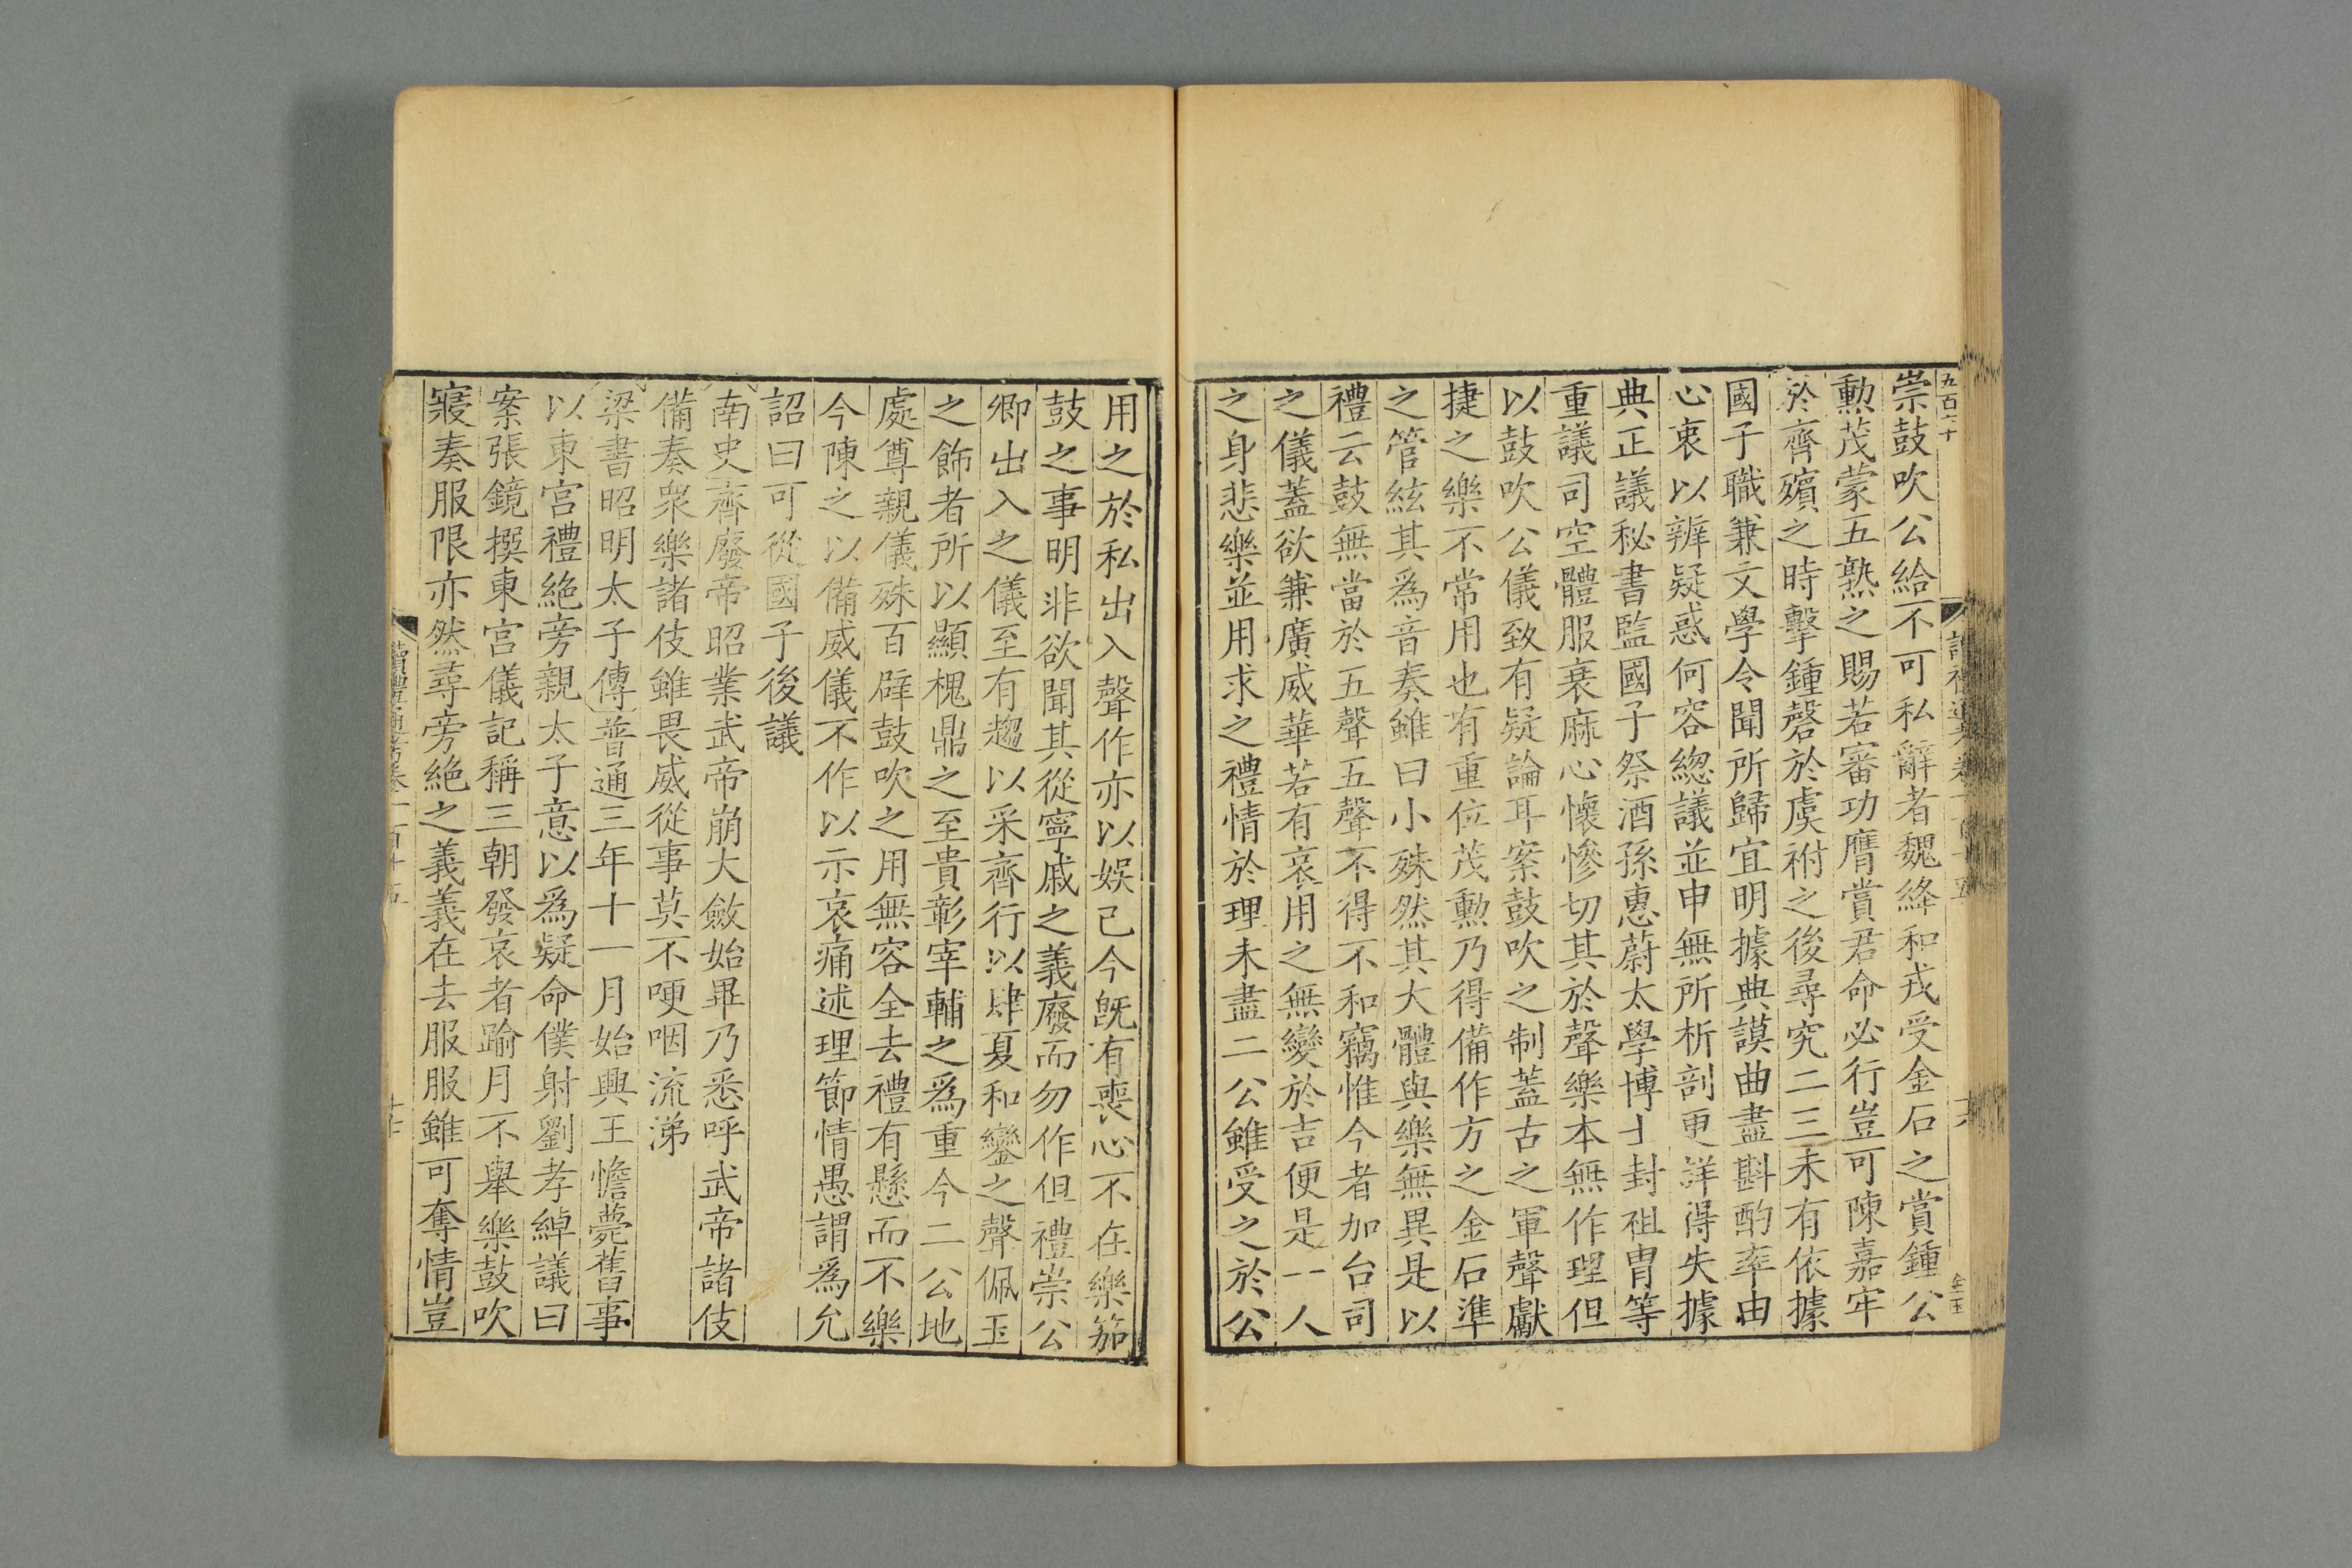 九百六十
崇鼓吹公給不可私辭者魏絳和戎受金石之賞鍾公
勳茂蒙五熟之賜若審功膺賞君命必行豈可陳嘉牢
於齊殯之時擊鍾磬於虞祔之後尋究二三未有依據
國子職兼文學令聞所歸宜明據典謨曲盡斟酌率由
心衷以辨疑惑何容緫議並申無所析剖更詳得失據
典正議秘書監國子祭酒孫惠蔚太學博士封祖胄等
重議司空體服衰麻心懷慘切其於聲樂本無作理但
以鼓吹公儀致有疑論耳案鼓吹之制蓋古之軍聲獻
捷之樂不常用也有重位茂勳乃得備作方之金石準
之管絃其爲音奏雖曰小殊然其大體與樂無異是以
禮云鼓無當於五聲五聲不得不和竊惟今者加台司
之儀蓋欲兼廣威華若有哀用之無變於吉便是一人
之身悲樂並用求之禮情於理未盡二公雖受之於公
用之於私出入聲作亦以娛己今旣有喪心不在樂笳
鼓之事明非欲聞其從寧戚之義廢而勿作但禮崇公
卿出入之儀至有趨以采齊行以肆夏和鑾之聲佩玉
之飾者所以顯槐鼎之至貴彰宰輔之爲重今二公地
處尊親儀殊百辟鼓吹之用無容全去禮有懸而不樂
今陳之以備威儀不作以示哀痛述理節情愚謂爲允
詔曰可從國子後議
南史齊廢帝昭業武帝崩大斂始畢乃悉呼武帝諸伎
備奏衆樂諸伎雖畏威從事莫不哽咽流涕
梁書昭明太子傳普通三年十一月始興王憺薨舊事
以東宮禮絶旁親太子意以爲疑命僕射劉孝綽議曰
案張鏡撰東宮儀記稱三朝發哀者踰月不舉樂鼓吹
寢奏服限亦然尋旁絶之義義在去服服雖可奪情豈
讀禮通考卷一百十五